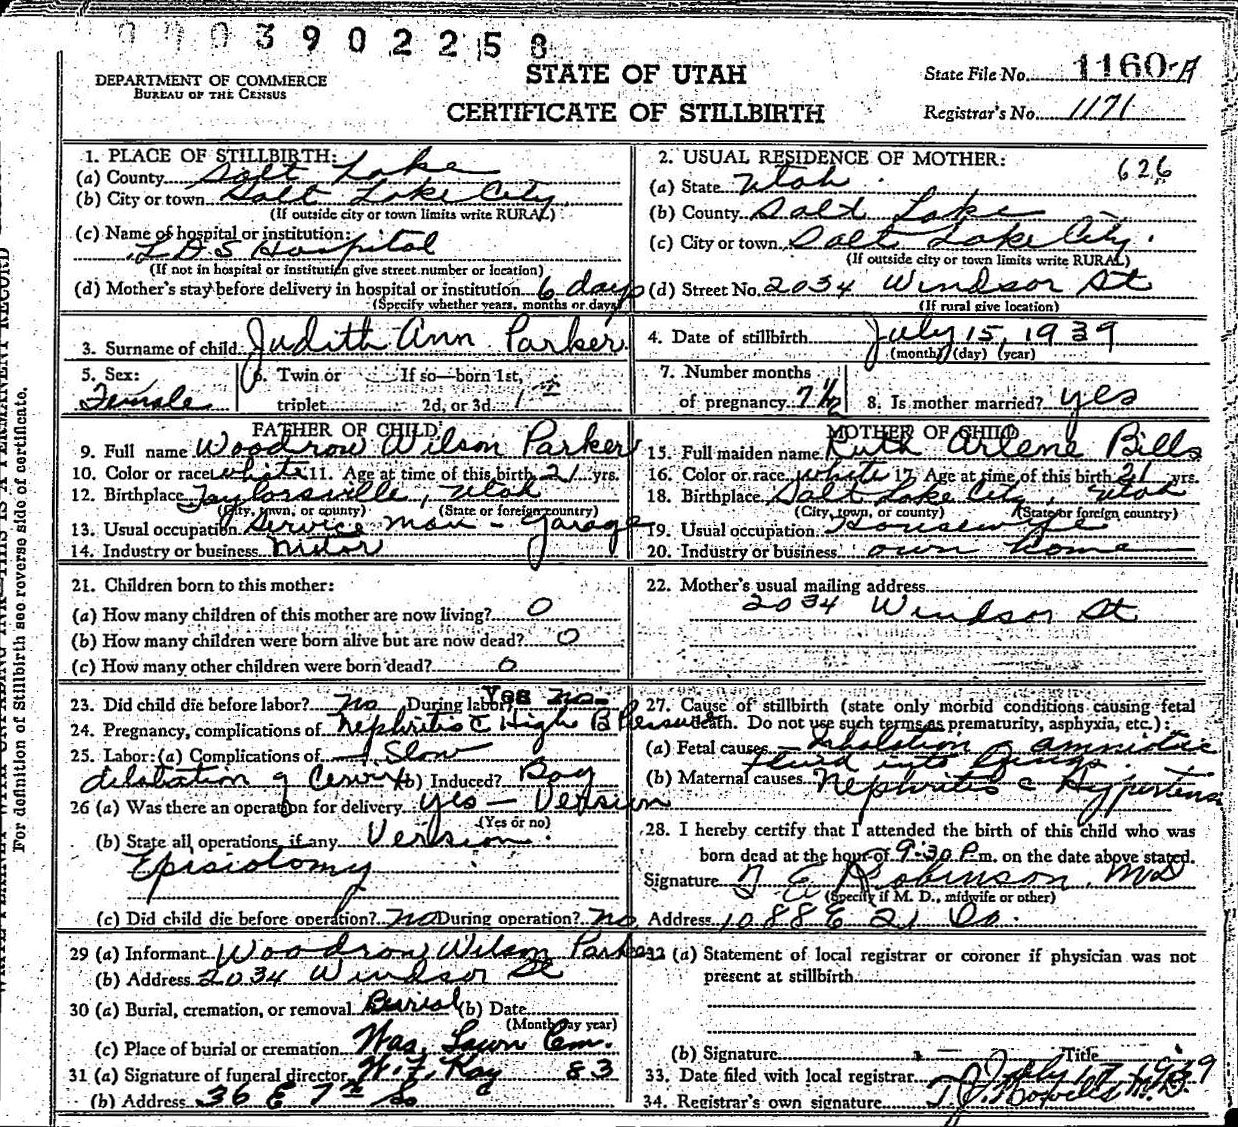 0003902258
DEPARTMENT OF COMMERCE
BUREAU OF THE CENSUS
STATE OF UTAH
CERTIFICATE OF STILLBIRTH
State File No. 1160-A
Registrar's No. 1171
1. PLACE OF STILLBIRTH:
(a) County Salt Lake
(b) City or town Salt Lake City
(If outside city or town limits write RURAL)
(c) Name of hospital or institution:
L D S Hospital
(If not in hospital or institution give street number or location)
(d) Mother's stay before delivery in hospital or institution 6 days
(Specify whether years, months or days)
2. USUAL RESIDENCE OF MOTHER: 626
(a) State Utah
(b) County Salt Lake
(c) City or town Salt Lake City.
(If outside city or town limits write RURAL)
(d) Street No. 2034 Windsor St
(If rural give location)
3. Surname of child Judith Ann Parker
4. Date of stillbirth July 15, 1939
(month) (day) (year)
5. Sex: Female
6. Twin or triplet If so—born 1st, 2d, or 3d 1st
7. Number months of pregnancy 7 1/2
8. Is mother married? yes
FATHER OF CHILD
9. Full name Woodrow Wilson Parker
10. Color or race white 11. Age at time of this birth 21 yrs.
12. Birthplace Taylorsville, Utah
(City, town, or county) (State or foreign country)
13. Usual occupation Service man - Garage
14. Industry or business Motor
MOTHER OF CHILD
15. Full maiden name Ruth Arlene Bills
16. Color or race white 17. Age at time of this birth 21 yrs.
18. Birthplace Salt Lake City, Utah
(City, town, or county) (State or foreign country)
19. Usual occupation Housewife
20. Industry or business own home
21. Children born to this mother:
(a) How many children of this mother are now living? 0
(b) How many children were born alive but are now dead? 0
(c) How many other children were born dead? 0
22. Mother's usual mailing address
2034 Windsor St
23. Did child die before labor? No During labor? Yes no
24. Pregnancy, complications of Nephritis c High B Pressure
25. Labor: (a) Complications of Slow
dilatation of Cervix (b) Induced? Bag
26 (a) Was there an operation for delivery yes - Version
(Yes or no)
(b) State all operations, if any Version.
Episiotomy
(c) Did child die before operation? no During operation? no
27. Cause of stillbirth (state only morbid conditions causing fetal
death. Do not use such terms as prematurity, asphyxia, etc.):
(a) Fetal causes Inhalation of amniotic
fluid into lungs.
(b) Maternal causes Nephritis c Hypertens
28. I hereby certify that I attended the birth of this child who was
born dead at the hour of 9:30 P.m. on the date above stated.
Signature T E Robinson MD
(Specify if M. D., midwife or other)
Address 1088 E 21 So.
29 (a) Informant Woodrow Wilson Parker
(b) Address 2034 Windsor St
30 (a) Burial, cremation, or removal Burial (b) Date
(Month day year)
(c) Place of burial or cremation Was. Lawn Cem.
31 (a) Signature of funeral director 83
(b) Address 36 E 7th So
32 (a) Statement of local registrar or coroner if physician was not
present at stillbirth
(b) Signature Title
33. Date filed with local registrar July 17 1939
34. Registrar's own signature T.J. Howells M.D.
For definition of Stillbirth see reverse side of certificate.